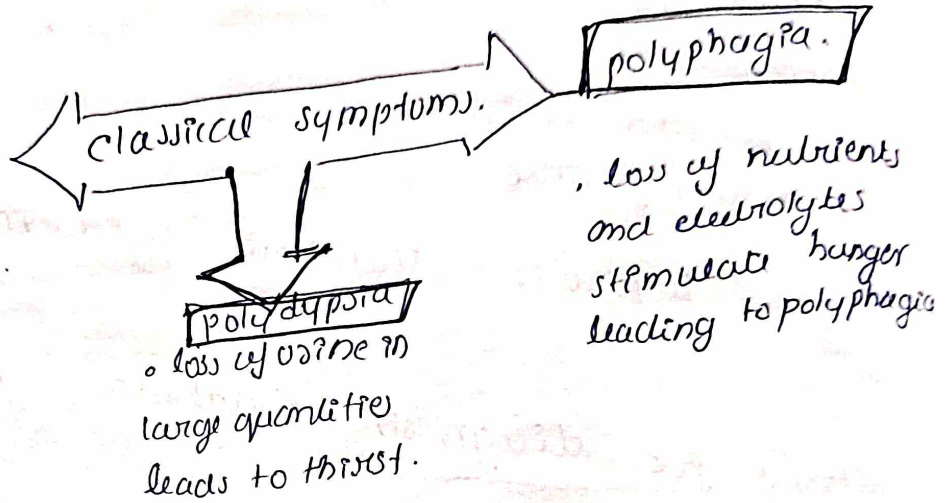 polyphagia.
classical symptoms.
. loss of nutrients
and electrolytes
stimulate hunger
leading to polyphagia
polydypsia
. loss of urine in
large quantities
leads to thirst.